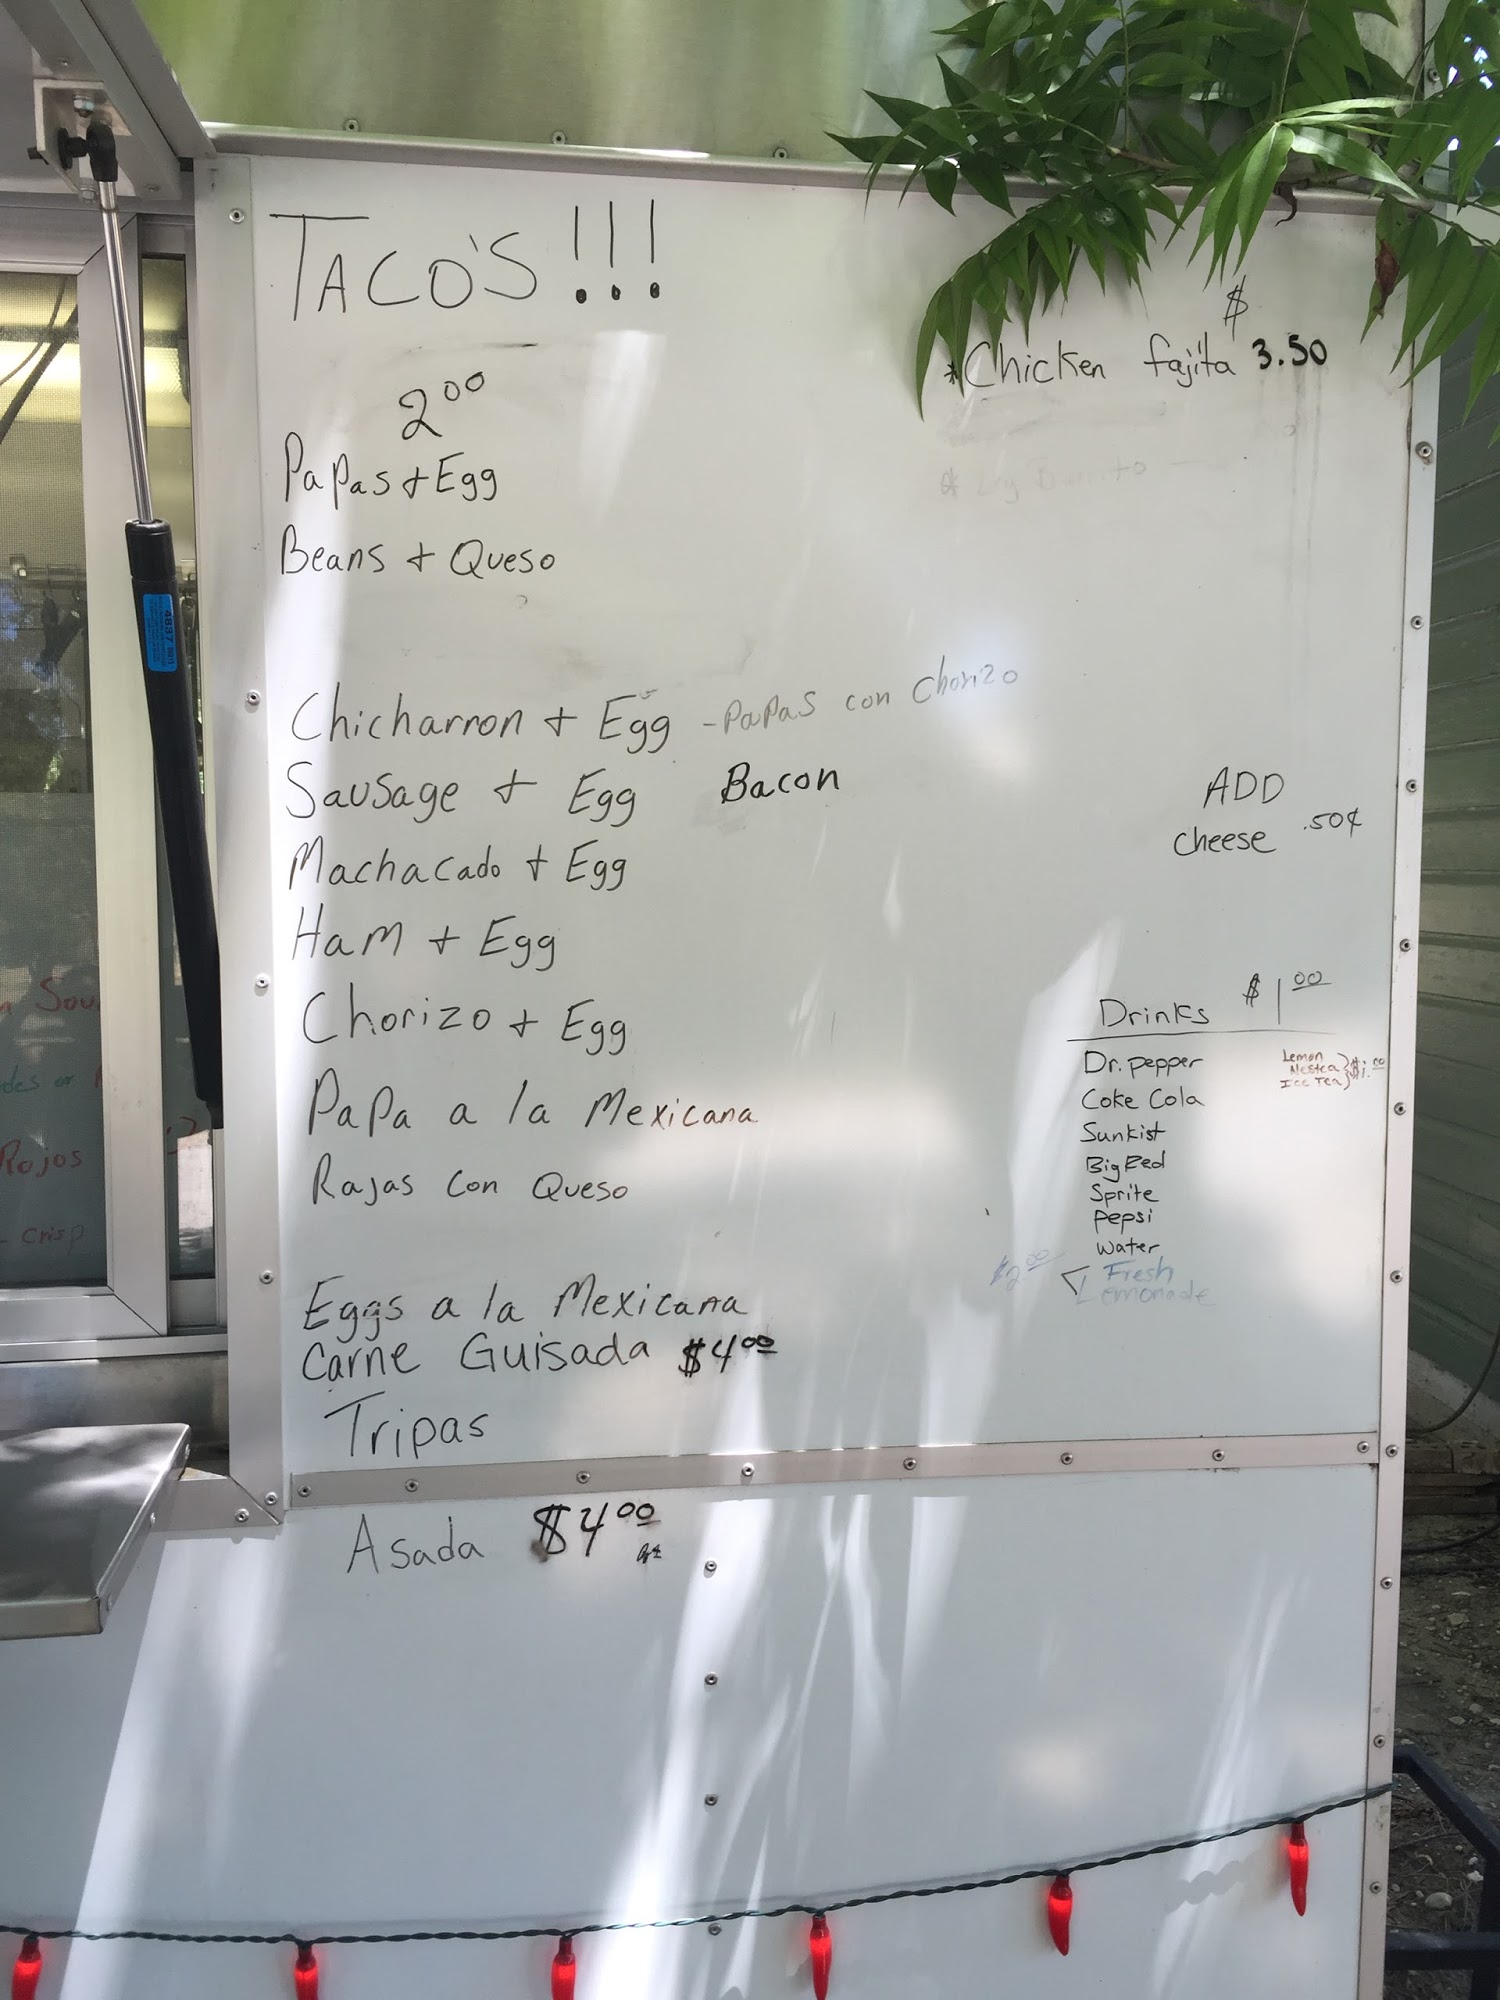 TACO'S !!!
2 00
Papas + Egg
Beans + Queso
Chicharron + Egg - Papas con Chorizo
Sausage + Egg Bacon
Machacado + Egg
Ham + Egg
Chorizo + Egg
Papa a la Mexicana
Rajas con Queso
Eggs a la Mexicana
Carne Guisada $4 00
Tripas
Asada $4 00
$
*Chicken fajita 3.50
ADD
cheese .50¢
Drinks $1 00
Dr. pepper
Coke Cola
Sunkist
Big Red
Sprite
Pepsi
Water
$2 00 Fresh
Lemonade
Lemon
Nestea
Ice Tea $1.00
4837
Rojos
- Crisp